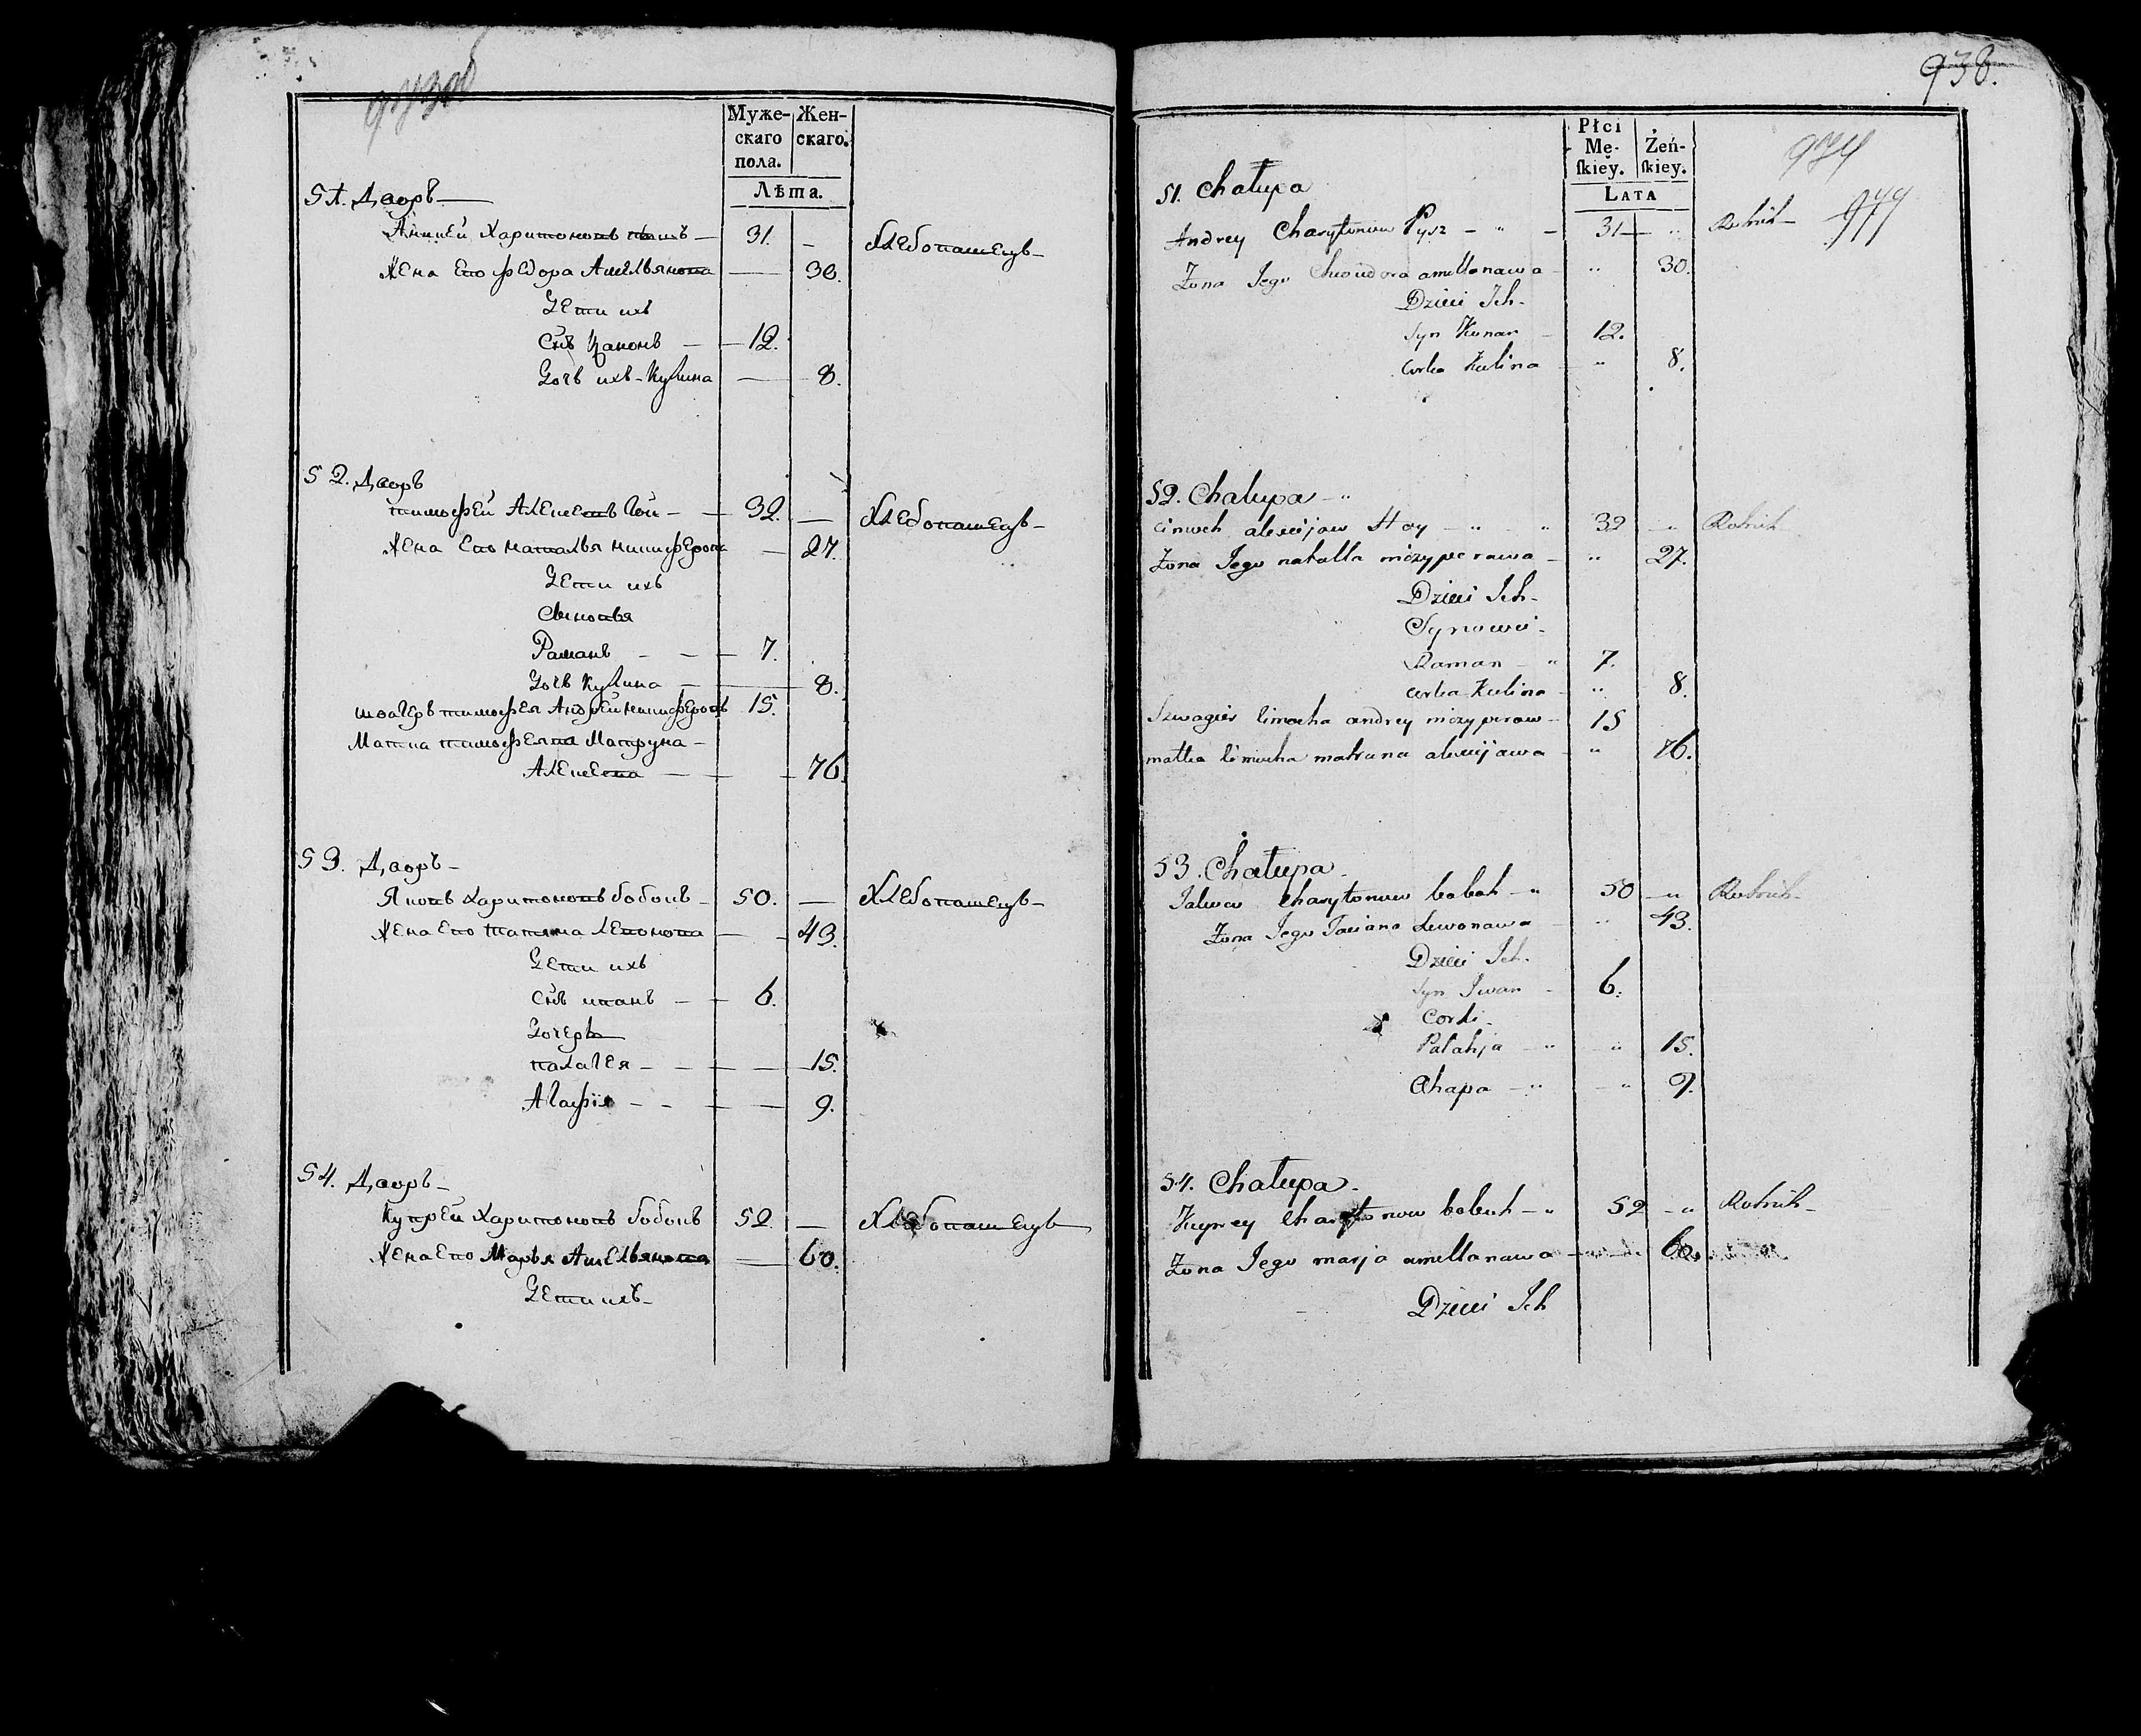 Муже-
скаго
пола.
Жен-
скаго.
Лѣта.
51. Дворъ
Жена Его Федора Амельянова — 30.
Дети ихъ
Снъ — 12.
Дочь ихъ Кулина — 8.
Хлебопашецъ
31. —
52. Дворъ
Тимофей Алексеевъ Гой — 32. — Хлебопашецъ
Жена Его Наталья Никиферова — 27.
Дети ихъ
Сыновья
Раманъ — 7.
Дочь Кулина — 8.
Швагеръ Тимофея Андрей Никиферовъ 15.
Матка Тимофеява Матруна
Алексеева — 76.
53. Дворъ
Яковъ Харитоновъ Бобокъ 50. — Хлебопашецъ
Жена Его Татяна Левонова — 43.
Дети ихъ
Снъ Иванъ — 6.
Дочеръ
Палагея — 15.
Агафія — 9.
54. Дворъ
Купрей Харитоновъ Бобокъ 52. — Хлебопашецъ
Жена Его Марья Амельянова — 60.
Дети ихъ
938.
974
979
Płci
Mę-
skiey.
Żeń-
skiey.
LATA
51. Chałupa
Andrey Charytonow Pysz 31 Rolnik
Żona Jego Chwiedora amellanawa 30.
Dzieci Ich
Syn Kunan 12.
Corka Kulina 8.
52. Chalupa
alexiejaw Hoy 32 Rolnik
Żona Jego natalla niczyperawa 27.
Dzieci Ich
Synowie
Raman 7.
Corka Kulina 8.
Szwagier timocha andrey niczyperaw 15
matka timocha matruna alexiejawa 76.
53. Chałupa
Jakow Charytonow bobok 50 Rolnik
Żona Jego Taciana Lewonawa 43.
Dzieci Ich
Syn Iwan 6.
Corki
Palahja 15.
Ahapa 9.
54. Chałupa
Kuprey Charytonow bobok 52 Rolnik
Żona Jego marja amellanawa 60.
Dzieci Ich